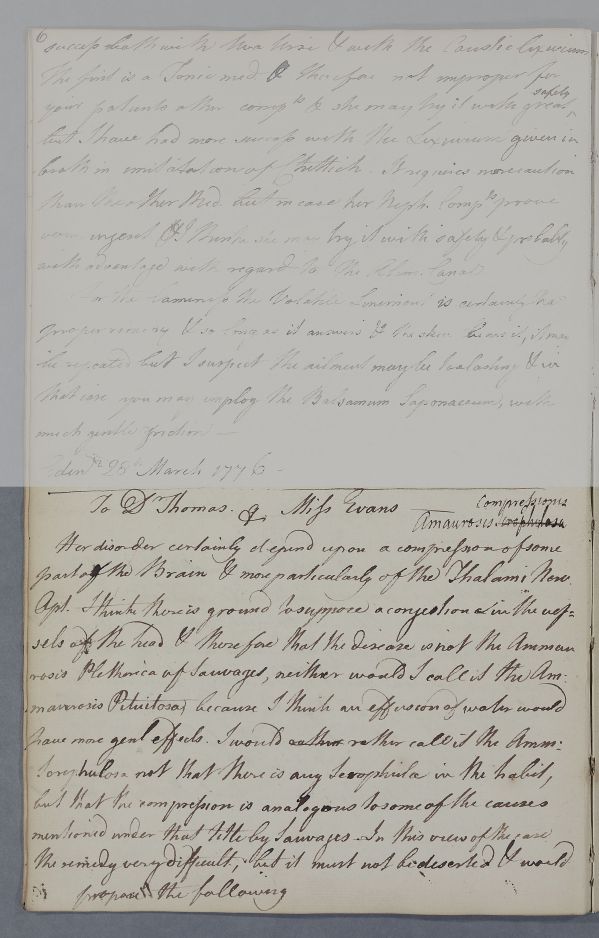 6
success both with Uva Ursi & with the Caustic Lixivium
The first is a Tonic med. & therefore not improper for
your patients other comp.ts & she may try it with great safety,
but I have had more success with the Lixivium given in
broth in imitation of Chittick. It requires more caution
than the other Med. but in case her Neph. Comp.ts prove
very urgent I think she may try it with safety & probably
with advantage with regard to the Alim. Canal
In the the Volatile Liniment is certainly the
proper remedy & so long as it answers & the skin bears it, it may
be repeated but I suspect the ailment may be too lasting & in
that case you may employ the Balsamum Saponaceum, with
much gentle friction —
Edinr 28th March 1776 -
To Dr Thomas. Miss Evans Compressionis
Amaurosis Scrophulosa
Her disorder certainly depend upon a compression of some
part of the Brain & more particularly of the Thalami Nerv.
Opt. I think there is ground to suppose a congestion in the ves=
sels of the head & therefore that the disease is not the Ammau
rosis Plethorica of Sauvages, neither would I call it the Am:
maurosis Pituitosa, because I think an effusion of water would
have more genl effects. I would rather rather call it the Amm:
Scrophulosa not that there is any Scrophula in the habit,
but that the compression is analogous to some of the causes
mentioned under that title by Sauvages. In this view of the case
the remedy very difficult, but it must not be deserted & would
propose the following